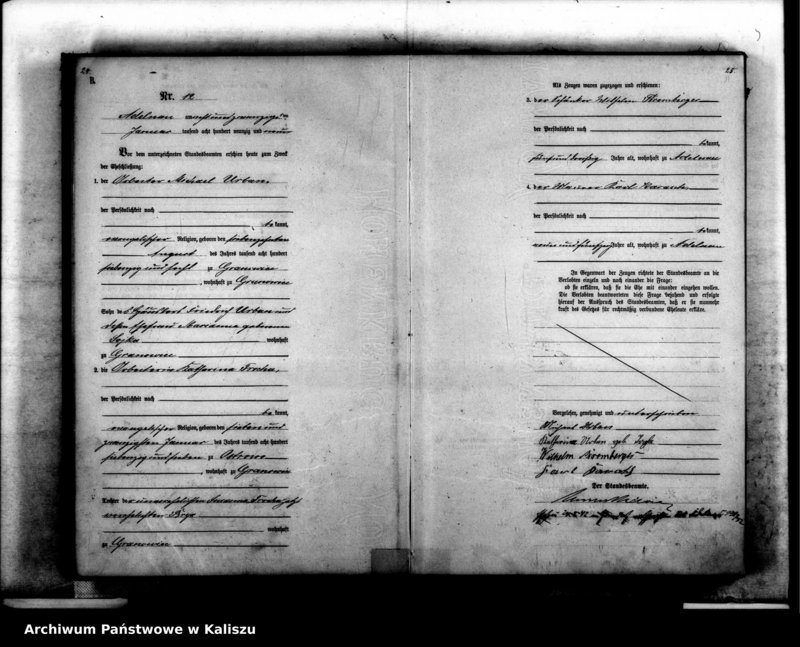 24
B.
Nr. 12
Adelnau am acht und zwanzigsten
Januar tausend acht hundert neunzig und neun
Vor dem unterzeichneten Standesbeamten erschien heute zum Zweck
der Eheschließung:
1. der Arbeiter Michael Urban,
der Persönlichkeit nach
be kannt,
evangelischer Religion, geboren den siebenzehnten
August des Jahres tausend acht hundert
siebenzig und sechs zu Granowiec
, wohnhaft zu Granowiec
Sohn des Friedrich Urban und
dessen Ehefrau Marianna geborenen
Sojka wohnhaft
zu Granowiec
2. die Arbeiterin Katharina
der Persönlichkeit nach
be kannt,
evangelischer Religion, geboren den sieben und
zwanzigsten Januar des Jahres tausend acht hundert
siebenzig und sieben zu Ostrowo
, wohnhaft zu Granowiec
Tochter der unverehelichten Susanna jetzt
verehelichten
wohnhaft
zu Granowiec
25
Als Zeugen waren zugezogen und erschienen:
3. der Wilhelm Kromberger
der Persönlichkeit nach
be kannt,
fünf und dreißig Jahre alt, wohnhaft zu Adelnau
4. der Maurer Karl
der Persönlichkeit nach
be kannt,
neun und fünfzig Jahre alt, wohnhaft zu Adelnau
In Gegenwart der Zeugen richtete der Standesbeamte an die
Verlobten einzeln und nach einander die Frage:
ob sie erklären, daß sie die Ehe mit einander eingehen wollen.
Die Verlobten beantworteten diese Frage bejahend und erfolgte
hierauf der Ausspruch des Standesbeamten, daß er sie nunmehr
kraft des Gesetzes für rechtmäßig verbundene Eheleute erkläre.
Vorgelesen, genehmigt und unterschrieben
Michael Urban
Katharina Urban geb.
Wilhelm Kromberger
Karl
Der Standesbeamte.
Archiwum Państwowe w Kaliszu